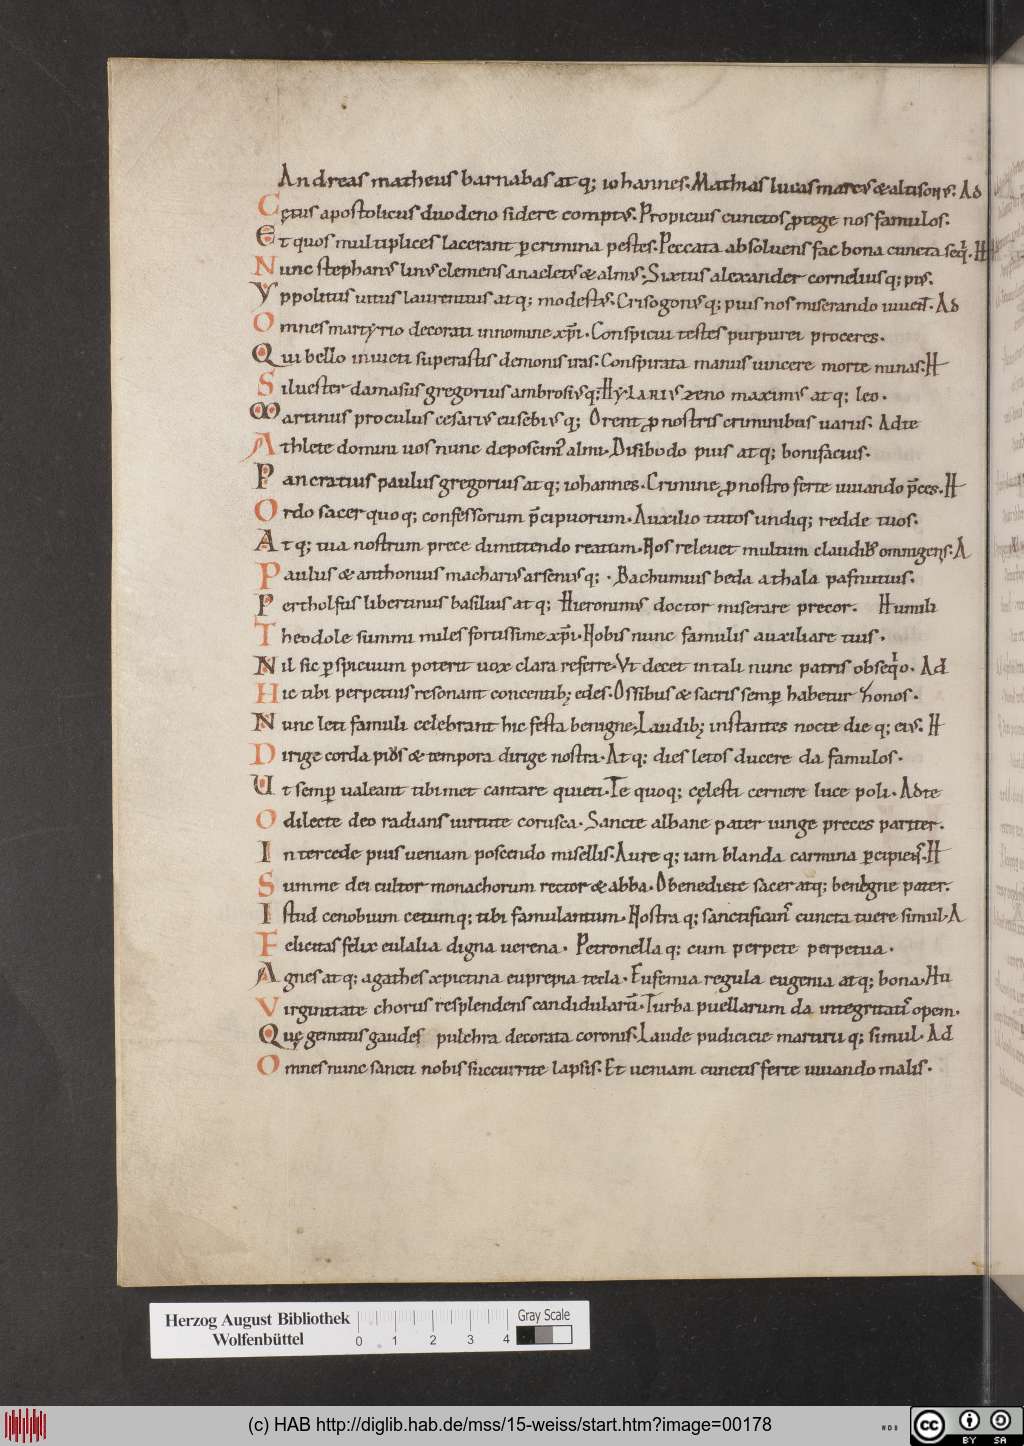 Andreas matheus barnabas atq; iohannes. Mathias lucas marcus & altisonus. Ad
Cętus apostolicus duodeno sidere comptus. Propicius cunctos ꝓtege nos famulos.
Et quos multiplices lacerant ꝑ crimina pestes. Peccata absoluens fac bona cuncta seq. H
Nunc stephanus linus clemens anacletus & almus. Sixtus alexander cornelius q; pius.
Yppolitus uitus laurentius atq; modestus. Crisogonus q; pius nos miserando iuuet. Ad
Omnes martyrio decorati in nomine xp̄i. Conspicui testes purpurei proceres.
Qui bello inuicti superastis demonis iras. Conspirata manus uincere morte minas. H
Siluester damasus gregorius ambrosius q; Hylarius zeno maximus atq; leo.
Martinus proculus cesarius eusebius q; Orent ꝓ nostris criminibus uarus. Ad te
Athlete domini uos nunc deposcim᷒ almi. Disibodo pius atq; bonifacius.
Pancratius paulus gregorius atq; iohannes. Crimine ꝓ nostro ferte iuuando p̄ces. H
Ordo sacer quoq; confessorum p̄cipuorum. Auxilio tutos undiq; redde tuos.
Atq; tua nostrum prece dimittendo reatum. Nos releuet multum claudib᷒ omnigenis. A
Paulus & anthonius macharius arsenius q; . Bachumius beda athala pafnutius.
Pertholfus libertinus basilius atq; Hieronimus doctor miserare precor. Humili
Theodole summi miles fortissime xp̄i. Nobis nunc famulis auxiliare tuis.
Nil sic ꝑspicuum poterit uox clara referre. Vt decet in tali nunc patris obseqio. Ad
Hic tibi perpetuis resonant concentib; edes. Ossibus & sacris semꝑ habetur honos.
Nunc leti famuli celebrant hic festa benigne. Laudib; instantes nocte die q; eius. H
Dirige corda pios & tempora dirige nostra. Atq; dies letos ducere da famulos.
Ut semꝑ ualeant tibimet cantare quieti. Te quoq; cęlesti cernere luce poli. Ad te
O dilecte deo radians uirtute corusca. Sancte albane pater iunge preces pariter.
Intercede pius ueniam poscendo misellis. Aure q; iam blanda carmina ꝑcipiens. H
Summe dei cultor monachorum rector & abba. O benedicte sacer atq; benigne pater.
Istud cenobium cetum q; tibi famulantum. Nostra q; sanctificans cuncta tuere simul. A
Felicitas felix eulalia digna uerena. Petronella q; cum perpete perpetua.
Agnes atq; agathes xpictina euprepia tecla. Eufemia regula eugenia atq; bona. Hu
Virginitate chorus resplendens candidularū. Turba puellarum da integritatis opem.
Quę genitus gaudes pulchra decorata coronis. Laude pudicicie martirii q; simul. Ad
Omnes nunc sancti nobis succurrite lapsis. Et ueniam cunctis ferte iuuando malis.
Herzog August Bibliothek
Wolfenbüttel
0 1 2 3 4
Gray Scale
(c) HAB http://diglib.hab.de/mss/15-weiss/start.htm?image=00178
cc BY SA